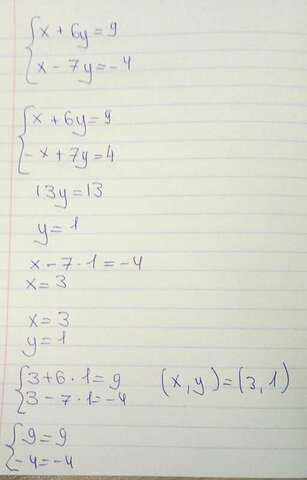 x + 6y = 9
x - 7y = -4
x + 6y = 9
-x + 7y = 4
13y = 13
y = 1
x - 7 · 1 = -4
x = 3
x = 3
y = 1
3 + 6 · 1 = 9 (x, y) = (3, 1)
3 - 7 · 1 = -4
9 = 9
-4 = -4